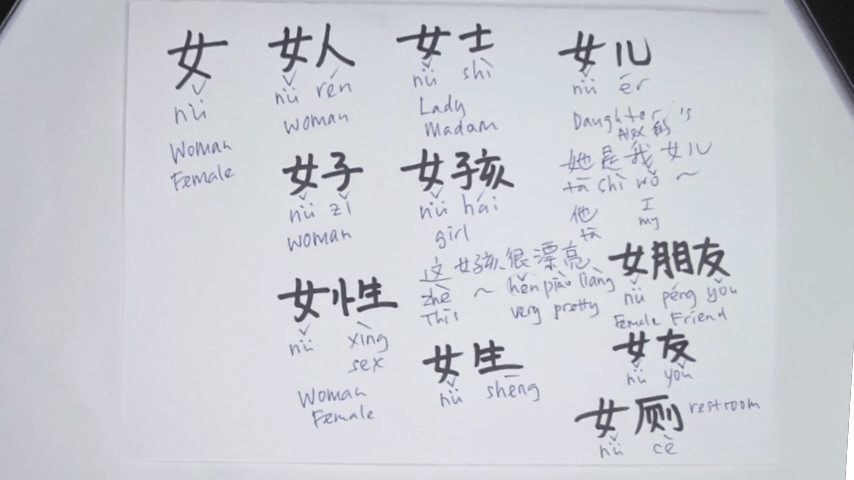 女
nǚ
Woman
Female
女人
nǚ rén
Woman
女士
nǚ shì
Lady
Madam
女儿
nǚ ér
Daughter 's
Alex 的
她是我女儿
tā shì wǒ ~
他 I
tā my
女子
nǚ zǐ
Woman
女孩
nǚ hái
girl
这女孩很漂亮
zhè ~ hěn piào liàng
This very pretty
女朋友
nǚ péng yǒu
Female Friend
女性
nǚ xìng
sex
Woman
Female
女生
nǚ shēng
女友
nǚ yǒu
女厕 restroom
nǚ cè